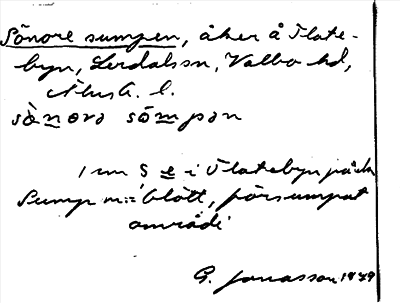 Sönore sumpen, åker å Flate-
byn, Lerdals sn, Valbo hd,
Älvsb. l.
sò̀norə sömpən
1 nm S e i Flatebyn på ek
Sump m.= blött, försumpat
område
G. Jonasson 1929